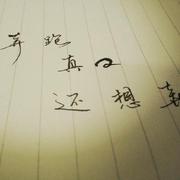 奔跑
真的
还想